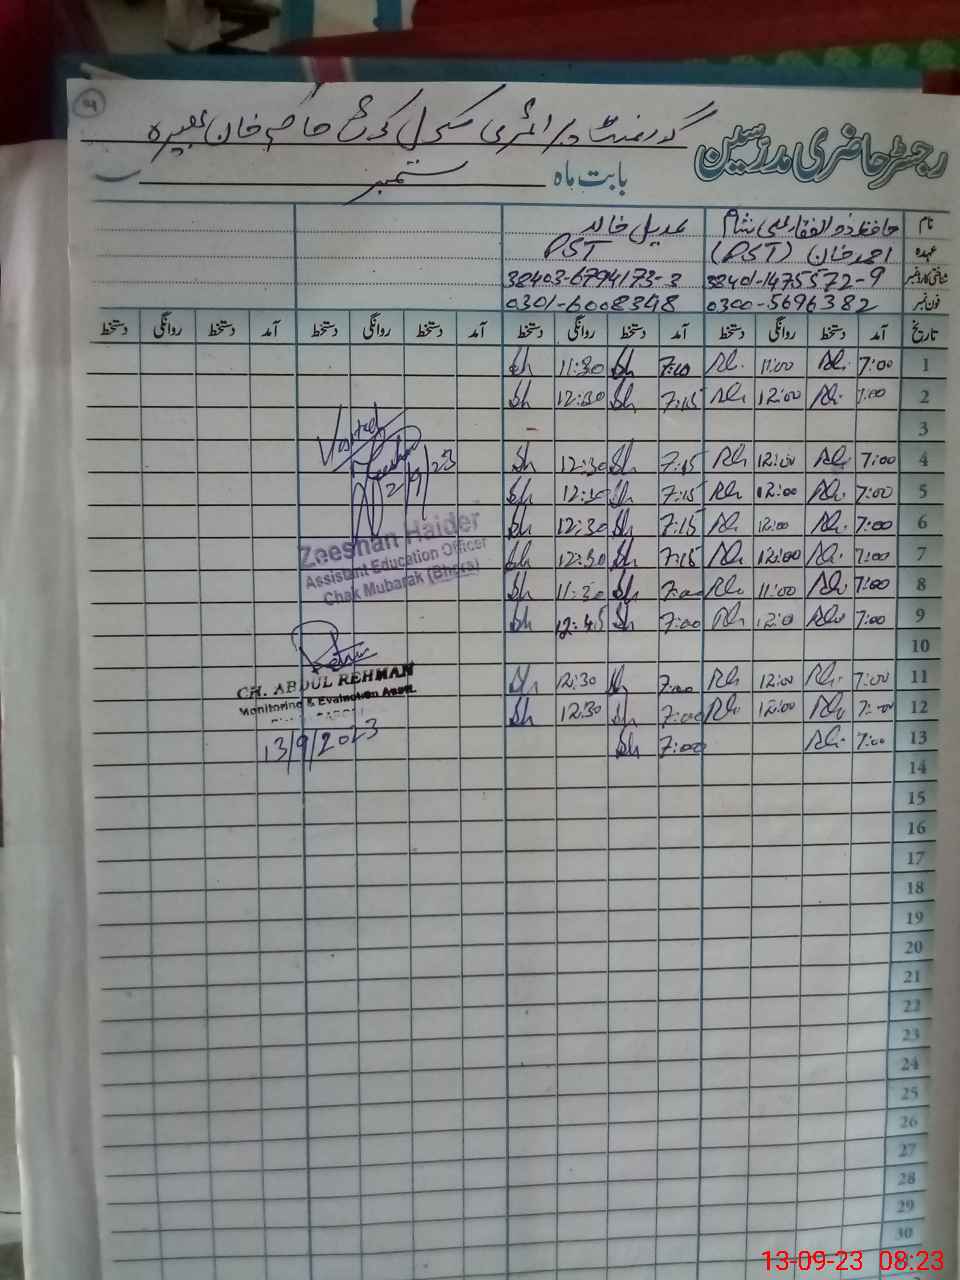 رجسٹر حاضری مدرسین
گورنمنٹ پرائمری سکول کوٹ حاکم خان بھیرہ
بابت ماہ ستمبر
نام حافظ ذوالفقار علی شاہ عدیل خالد
عہدہ احمد خان (PST) PST
شناختی کارڈ نمبر 38401-1475572-9 38403-6794173-3
فون نمبر 0300-5696382 0301-6008348
تاریخ آمد دستخط روانگی دستخط آمد دستخط روانگی دستخط آمد دستخط روانگی دستخط آمد دستخط روانگی دستخط
1 7:00 11:00 11:30
2 7:00 12:00 7:15 12:30
3
4 7:00 12:00 7:15 12:30
5 7:00 12:00 7:15
6 7:00 12:00 7:15 12:30
7 7:00 12:00 7:15 12:30
8 7:00 11:00 7:00 11:30
9 7:00 12:00 7:00 12:45
10
11 7:00 12:00 7:00 12:30
12 7:00 12:00 7:00 12:30
13 7:00 7:00
14
15
16
17
18
19
20
21
22
23
24
25
26
27
28
29
30
Visited
Zeeshan Haider
Assistant Education Officer
Chak Mubarak (Bhera)
CH. ABDUL REHMAN
Monitoring & Evaluation Asstt.
13/9/2023
13-09-23 08:23